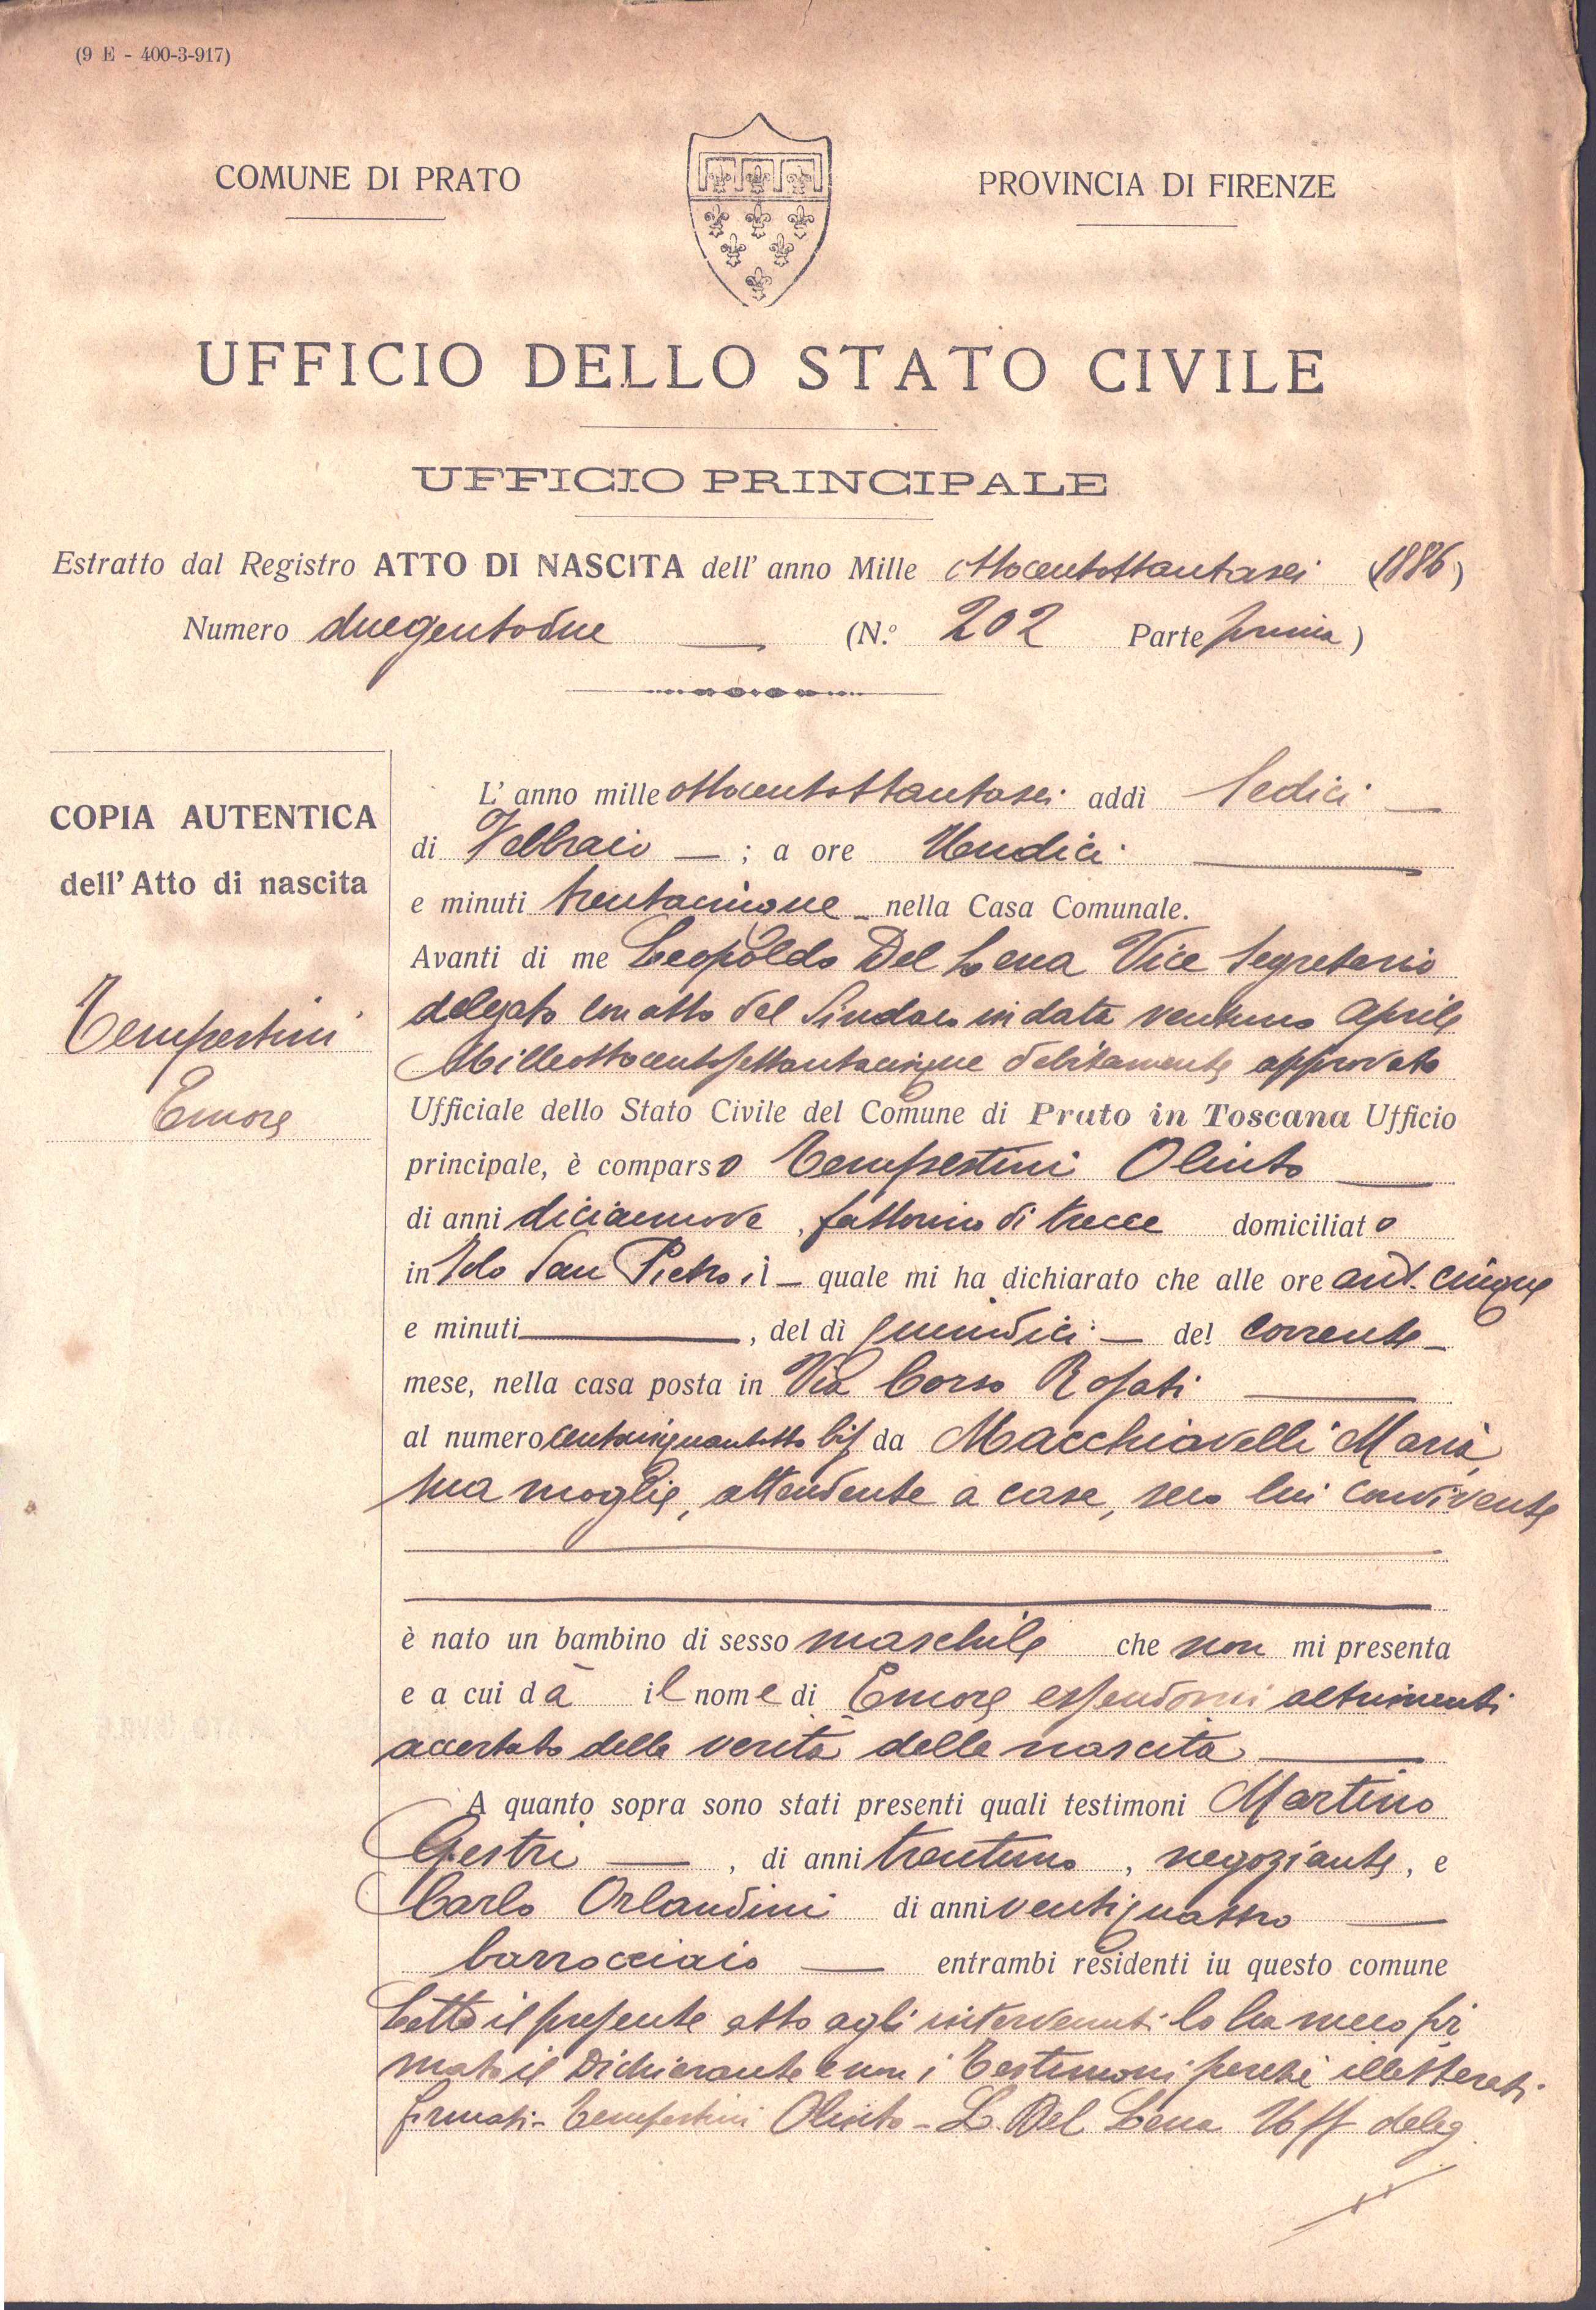 (9 E - 400-3-917)
COMUNE DI PRATO
PROVINCIA DI FIRENZE
UFFICIO DELLO STATO CIVILE
UFFICIO PRINCIPALE
Estratto dal Registro ATTO DI NASCITA dell' anno Mille ottocentottantasei (1886)
Numero duegentodue (N.º 202 Parte prima)
COPIA AUTENTICA
dell' Atto di nascita
Tempestini
Emore
L' anno mille ottocentottantasei addì Sedici
di Febbraio ; a ore Undici
e minuti trentacinque nella Casa Comunale.
Avanti di me Leopoldo Del Lena Vice Segretario
delegato con atto del Sindaco in data ventuno Aprile
Milleottocentosettantacinque debitamente approvato
Ufficiale dello Stato Civile del Comune di Prato in Toscana Ufficio
principale, è comparso Tempestini Olinto
di anni diciannove, fattorino di trecce domiciliato
in San Pietro, il quale mi ha dichiarato che alle ore ant. cinque
e minuti , del dì quindici del corrente
mese, nella casa posta in Via Corso Rosati
al numero centocinquantotto bis da Macchiavelli Maria
sua moglie, attendente a casa, seco lui convivente
è nato un bambino di sesso maschile che non mi presenta
e a cui dà il nome di Emore essendomi altrimenti
accertato della verità della nascita
A quanto sopra sono stati presenti quali testimoni Martino
Gestri , di anni trentuno, negoziante, e
Carlo Orlandini di anni ventiquattro
barrocciaio entrambi residenti iu questo comune
Letto il presente atto agli intervenuti lo ha meco fir
mato il Dichiarante e non i Testimoni perchè illetterati
firmati- Tempestini Olinto - L. Del Lena Uff deleg